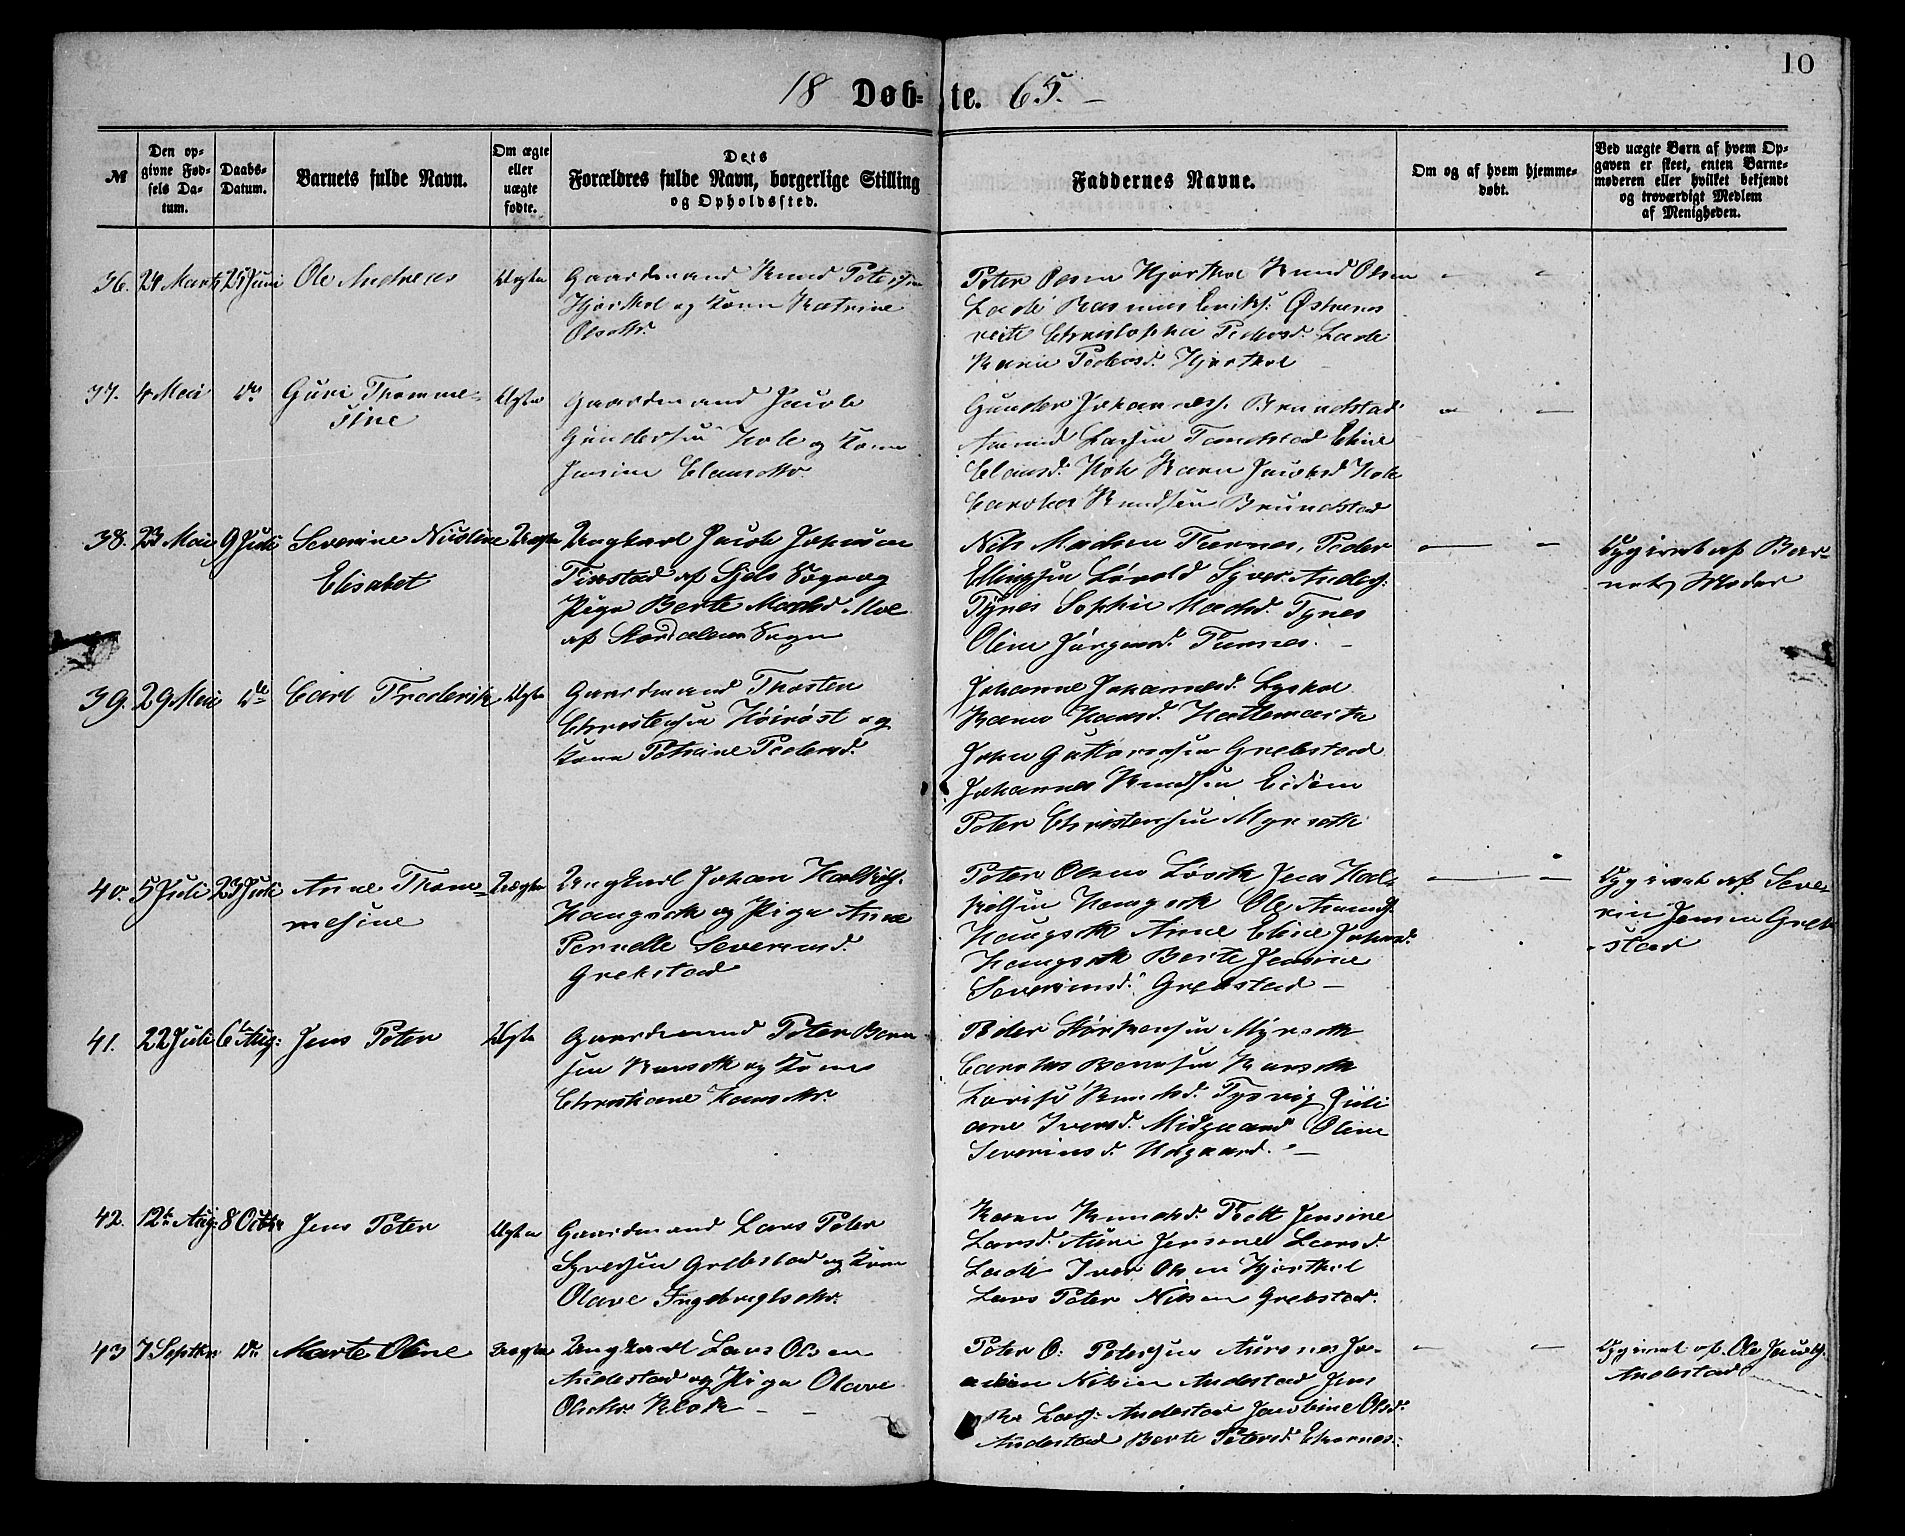 10
18 Døb-te. 65.
№
Den op-
givne Fød-
sels Da-
tum.
Daabs-
Datum.
Barnets fulde Navn.
Om ægte
eller
uægte
fødte.
Dets
Forældres fulde Navn, borgerlige Stilling
og Opholdssted.
Faddernes Navne.
Om og af hvem hjemme-
døbt.
Ved uægte Børn af hvem Op-
gaven er skeet, enten Barne-
moderen eller hvilket bekjendt
og troværdigt Medlem
af Menigheden.
36. 24 Marts 25 Juni Ole Andreas Ægte
Gaardmand Knud Petersen
Hjorthol og Kone Katrine
Olsdtr.
Peter Olsen Hjorthol Knud Olsen
Lade Rasmus Eriks. Østrems
veit Christopha Pedersd. Lade
Karn Pedersd. Hjorthol
37. 4 Mai Do Guri Thomme-
sine
Ægte
Gaardmand Jacob
Gundersen Hole og Kone
Jensine Clausdtr.
Gunder Johanness. Brundstad
Amund Larsen Tandstad Eline
Clausd. Hole Karn Jacobsd Hole
Carolus Knudsen Brundstad
38. 23 Mai 9 Juli Severine Nicoline
Elisabet
Uægte
Ungkarl Jacob Johnsen
Finstad af Sjels Sogn og
Pige Berte Madsd Moe
af Stordalens Sogn
Nils Madsen Tunnes, Peder
Ellingsen Løvold Syver Anders.
Tynes Sophie Madsd. Tynes
Oline Jørgensd. Tunnes. -
Opgivet af Bar-
nets Moder
39. 29 Mai Do Carl Frederik Ægte
Gaardmand Thosten
Christensen Høinøst og
Kone Petrine Pedersd.
Johanne Johannesd. Lyshol
Karn Hansd. Hattemark
John Guttormsen Grebstad
Johannes Knudsen Eidem
Peter Christensen Myrseth
40. 5 Juli 23 Juli Anne Thom-
mesine
Uægte
Ungkarl Johan Halkjels.
Haugseth og Pige Anne
Pernelle Severinsd.
Grebstad
Peter Olsen Løseth Jens Hal-
kelsen Haugseth Ole Amunds.
Haugseth Anne Eline Johnsd.
Haugseth Berte Jensine
Severinsd. Grebstad -
Opgivet af Seve-
rin Jensen Greb-
stad
41. 22 Juli 6te Aug: Jens Peter Ægte
Gaardmand Peter Bern
sen Ramseth og Kone
Christiane Hansdtr.
Peder Størkersen Myrseth
Carolus Berntsen Ramseth
Lovise Knudsd. Tysvig Juli
ane Iversd. Midgaard Oline
Severinsd. Udgaard. -
42. 12te Aug: 8 Octbr Jens Peter Ægte
Gaardmand Lars Peter
Syversen Grebstad og Kone
Olave Ingebrigtsdtr.
Karn Knudsd. Tvitt Jensine
Larsd. Aure Jensine Larsd.
Lade Iver Olsen Hjorthol
Lars Peter Nilsen Grebstad.
43 7 Septbr Do Marte Oline Uægte
Ungkarl Lars Olsen
Andestad og Pige Olave
Olsdtr. Klok - -
Peter O. Petersen Aursnes Jo-
achim Nilsen Andestad Jens
Lars. Andestad Jacobine Olsd.
Andestad Berte Petersd. Ekornes.
Opgivet af Ole Jacobs.
Andestad